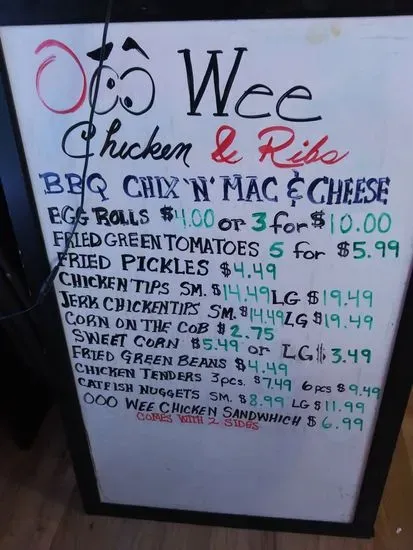 Ooo Wee
Chicken & Ribs
BBQ CHIX 'N' MAC & CHEESE
EGG ROLLS $4.00 or 3 for $10.00
FRIED GREEN TOMATOES 5 for $5.99
FRIED PICKLES $4.49
CHICKEN TIPS SM. $14.49 LG $19.49
JERK CHICKEN TIPS SM. $14.49 LG $19.49
CORN ON THE COB $2.75
SWEET CORN $5.49 or LG $3.49
FRIED GREEN BEANS $4.49
CHICKEN TENDERS 3pcs. $7.49 6pcs $9.49
CATFISH NUGGETS SM. $8.99 LG $11.99
OOO WEE CHICKEN SANDWHICH $6.99
COMES WITH 2 SIDES